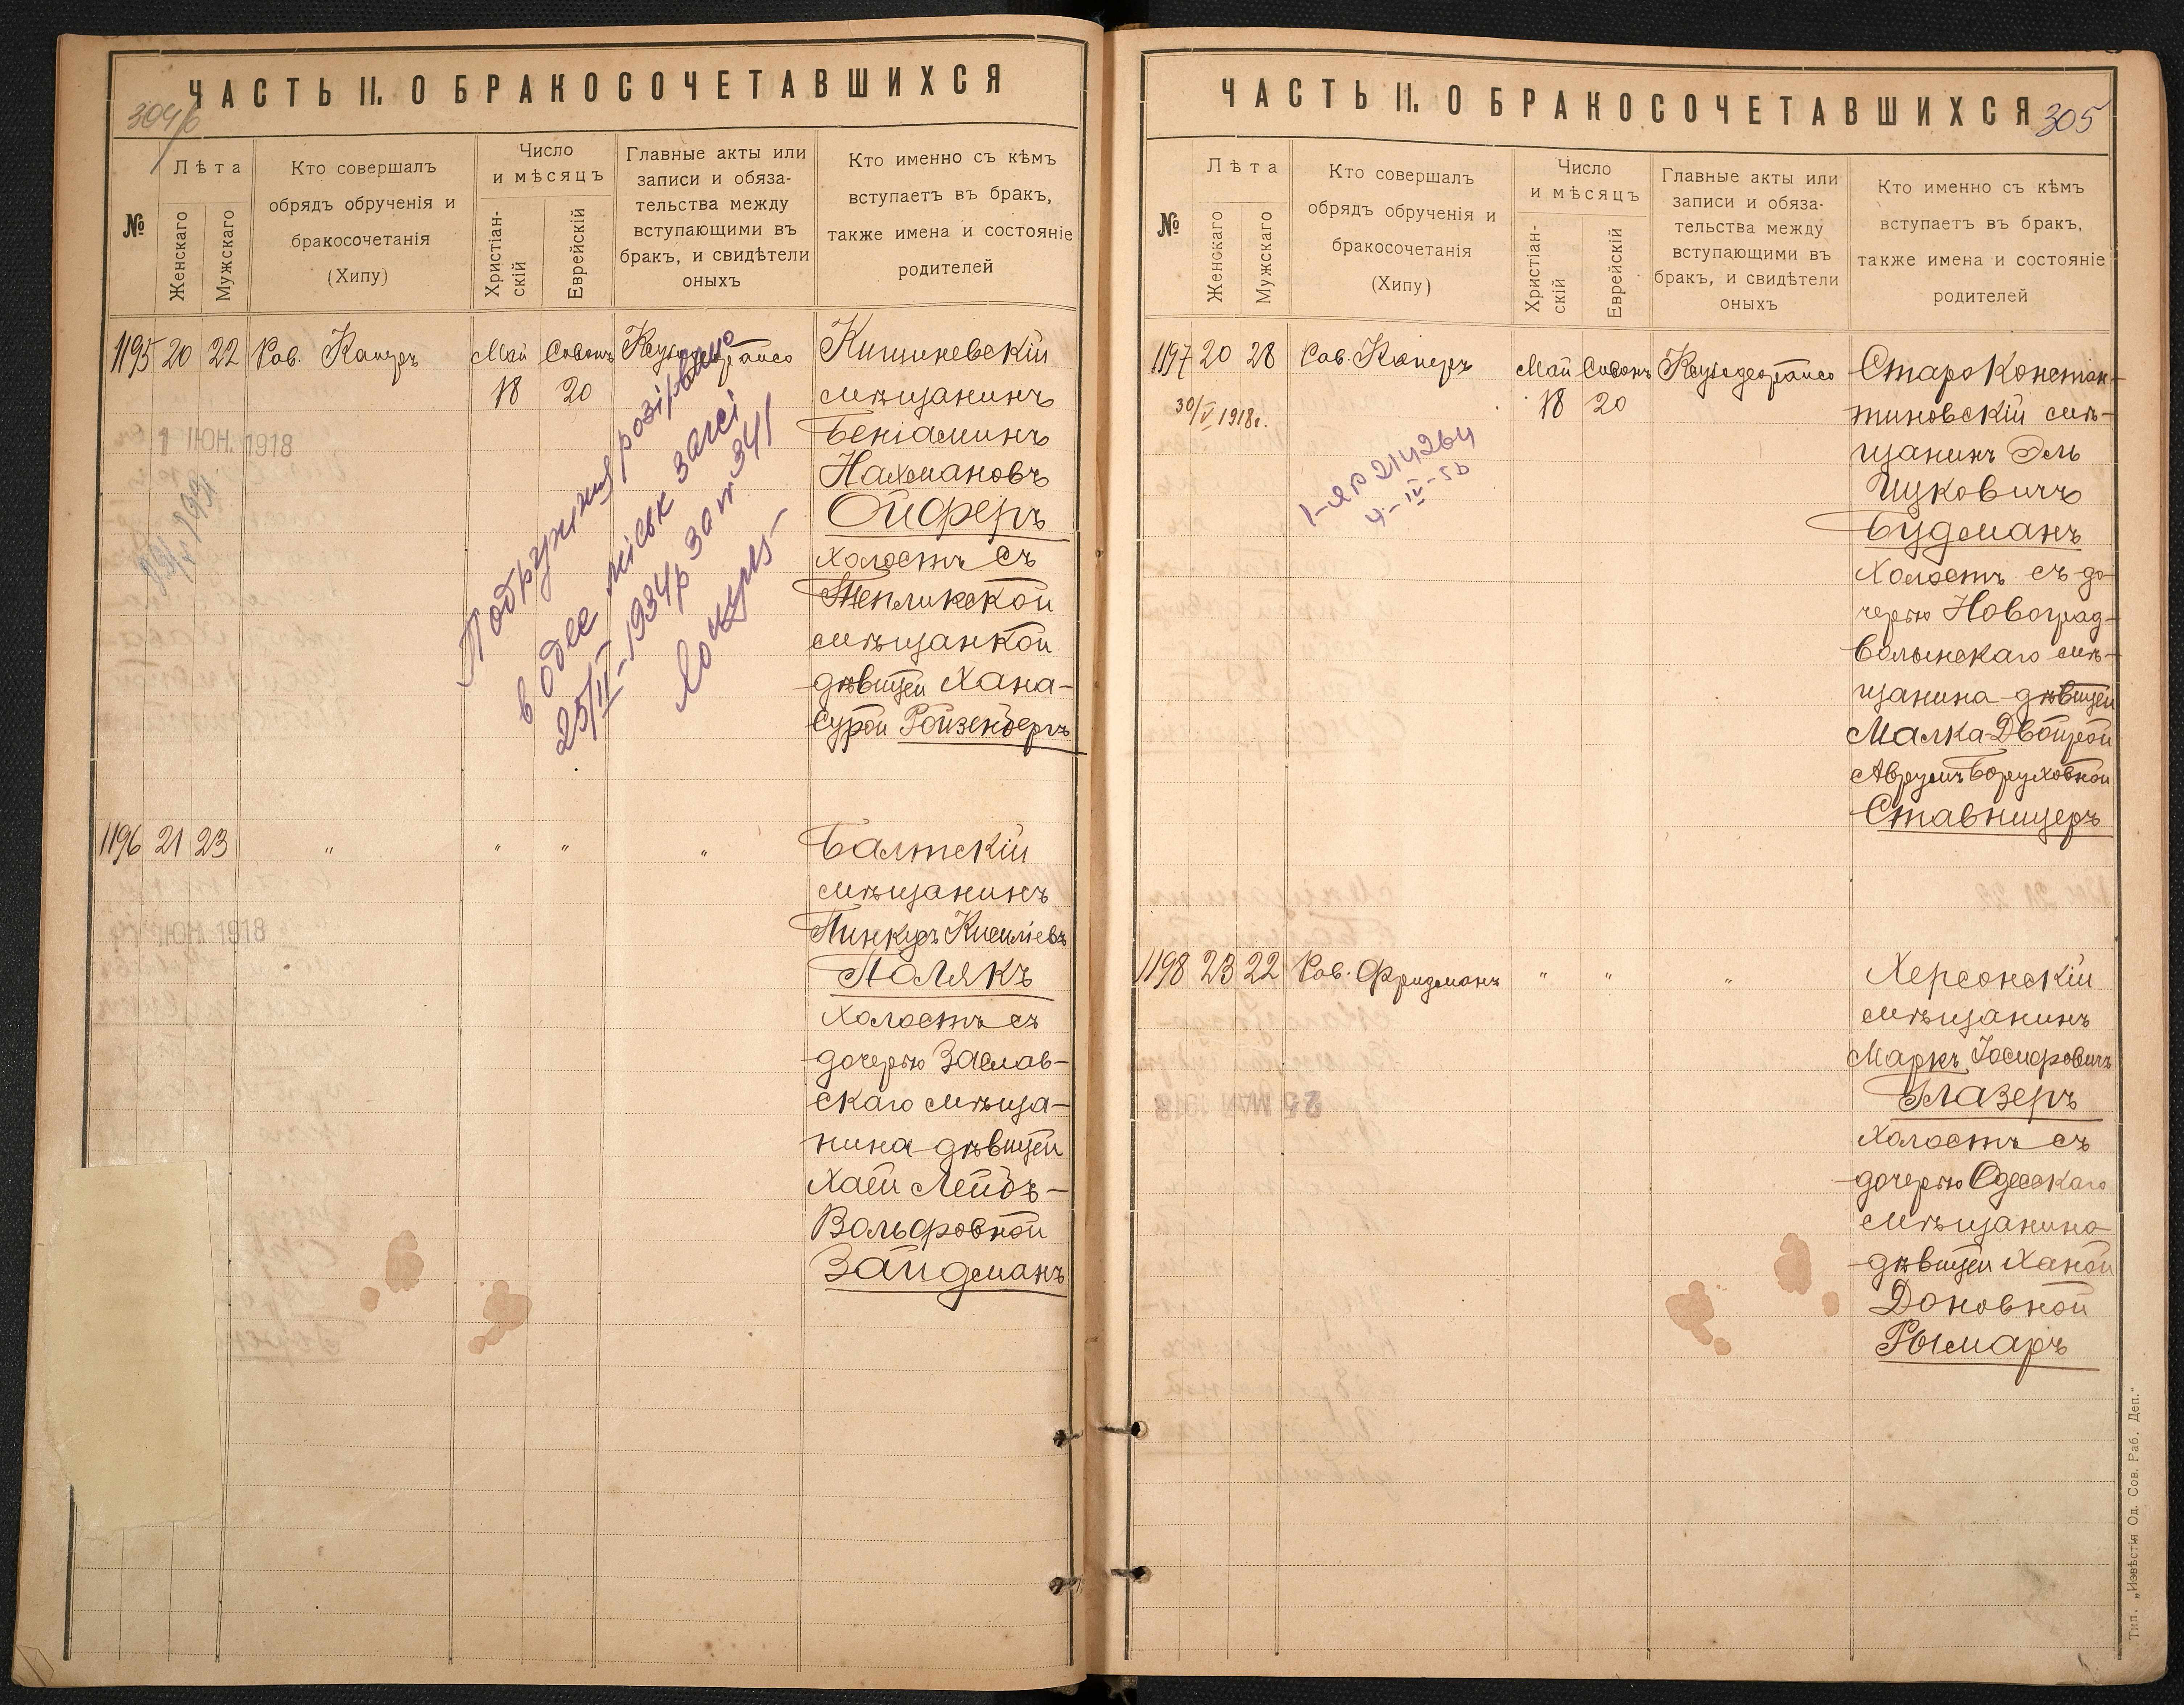 ЧАСТЬ II. О БРАКОСОЧЕТАВШИХСЯ
№
Лѣта
Женскаго
Мужскаго
Кто совершалъ
обрядъ обрученія и
бракосочетанія
(Хипу)
Число
и мѣсяцъ
Христіан-
скій
Еврейскій
Главные акты или
записи и обяза-
тельства между
вступающими въ
бракъ, и свидѣтели
оныхъ
Кто именно съ кѣмъ
вступаетъ въ бракъ,
также имена и состояніе
родителей
1195 20 22 Рав. Каперъ Май Сивонъ
18 20
1 ЮН. 1918
Кишиневскій
мѣщанинъ
Беніаминъ
Нахмановъ
Ойферъ
холостъ съ
Тепликской
мѣщанкой
дѣвицей Хана-
Сурой Ройзенбергъ
Подружжя розірвано
в Одес міськ загсі
25/II-1934р за № 341
1196 21 23 " " " "
1 ЮН. 1918
Балтскій
мѣщанинъ
Пинкусъ Кисиліевъ
Полякъ
холостъ съ
дочерью Заслав-
скаго мѣща-
нина дѣвицей
Хаей Лейбъ-
Вольфовной
Зайдманъ
ЧАСТЬ II. О БРАКОСОЧЕТАВШИХСЯ 305
№
Лѣта
Женскаго
Мужскаго
Кто совершалъ
обрядъ обрученія и
бракосочетанія
(Хипу)
Число
и мѣсяцъ
Христіан-
скій
Еврейскій
Главные акты или
записи и обяза-
тельства между
вступающими въ
бракъ, и свидѣтели
оныхъ
Кто именно съ кѣмъ
вступаетъ въ бракъ,
также имена и состояніе
родителей
1197 20 28 Рав. Каперъ Май Сивонъ
18 20
30/V 1918г.
214264
4-IV-
Старо Констан-
тиновскій мѣ-
щанинъ Эль
Ицковичъ
Будманъ
холостъ съ до-
черью Новоград-
волынскаго мѣ-
щанина дѣвицей
Малка-Двойрой
Аврумъ Боруховной
Ставницеръ
1198 23 22 Рав. Фридманъ " " "
Херсонскій
мѣщанинъ
Маркъ Іосифовичъ
Глазеръ
холостъ съ
дочерью Одесскаго
мѣщанина
дѣвицей Ханой
Доновной
Рымаръ
Тип. „Извѣстія Од. Сов. Раб. Деп."